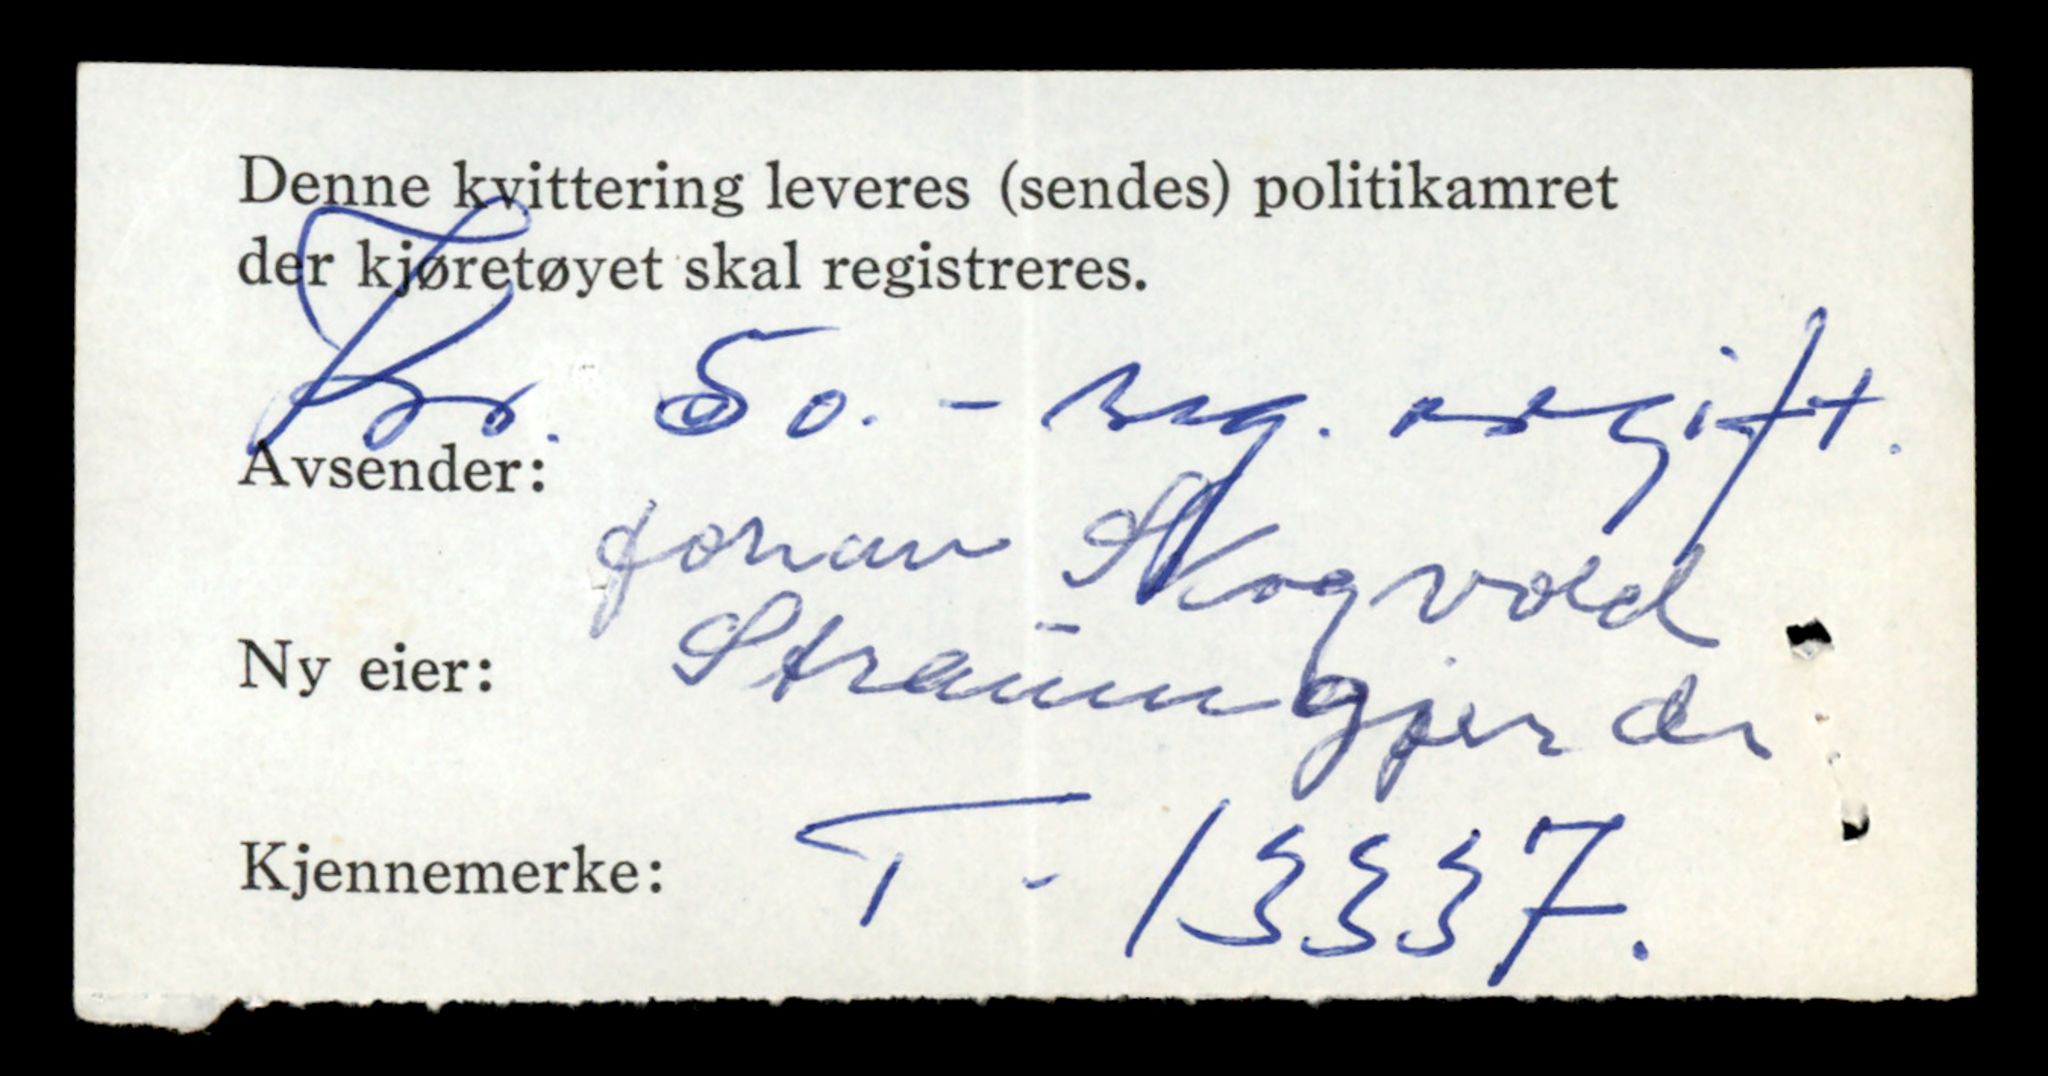 Denne kvittering leveres (sendes) politikamret
der kjøretøyet skal registreres.
Kr. 50.- reg. avgift.
Avsender:
Johan Skogvold
Ny eier: Straumgjerde
Kjennemerke: T-13337.